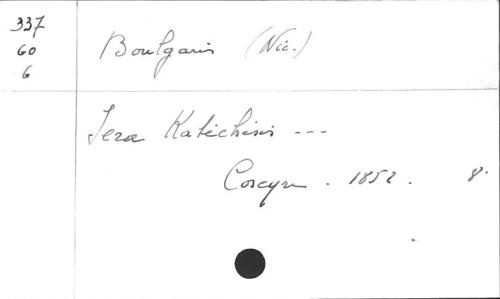 337
60
6
Boulgaris (Nic.)
Iera Katichisis ---
Corcyre. 1852. 8.